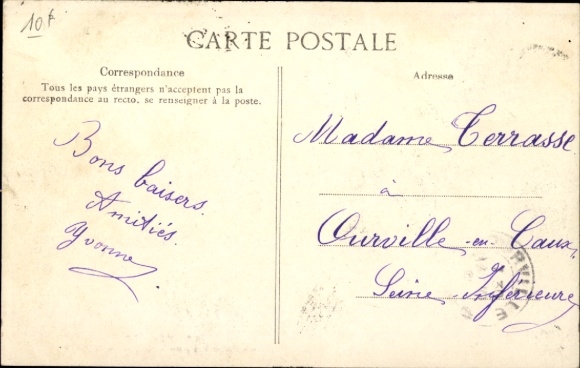 10f
CARTE POSTALE
Correspondance
Tous les pays étrangers n'acceptent pas la
correspondance au recto, se renseigner à la poste.
Bons baisers.
Amitiés.
Yvonne
Adresse
Madame Terrasse
à
Ourville-en-Caux
Seine Inférieure